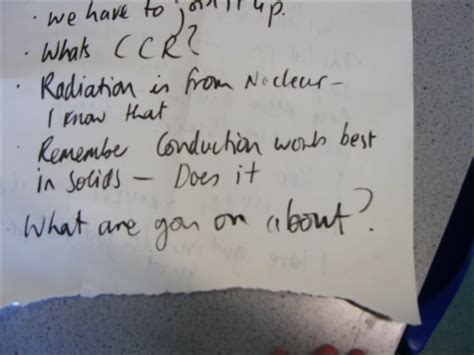 · we have to join it up.
· Whats CCR?
· Radiation is from Nuclear –
I know that
· Remember Conduction works best
in solids – Does it
What are you on about?